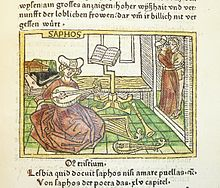 wysen. ain grosses anzaigen hoher wyßhait vnd ver
nunfft der loblichen frowen/ dar vm̄ it billich nit ver
gessen würt.
SAPHOS
Of tristium.
Lesbia quid docuit saphos nisi amare puellas
Von saphos der poeta das .xlv capitel.